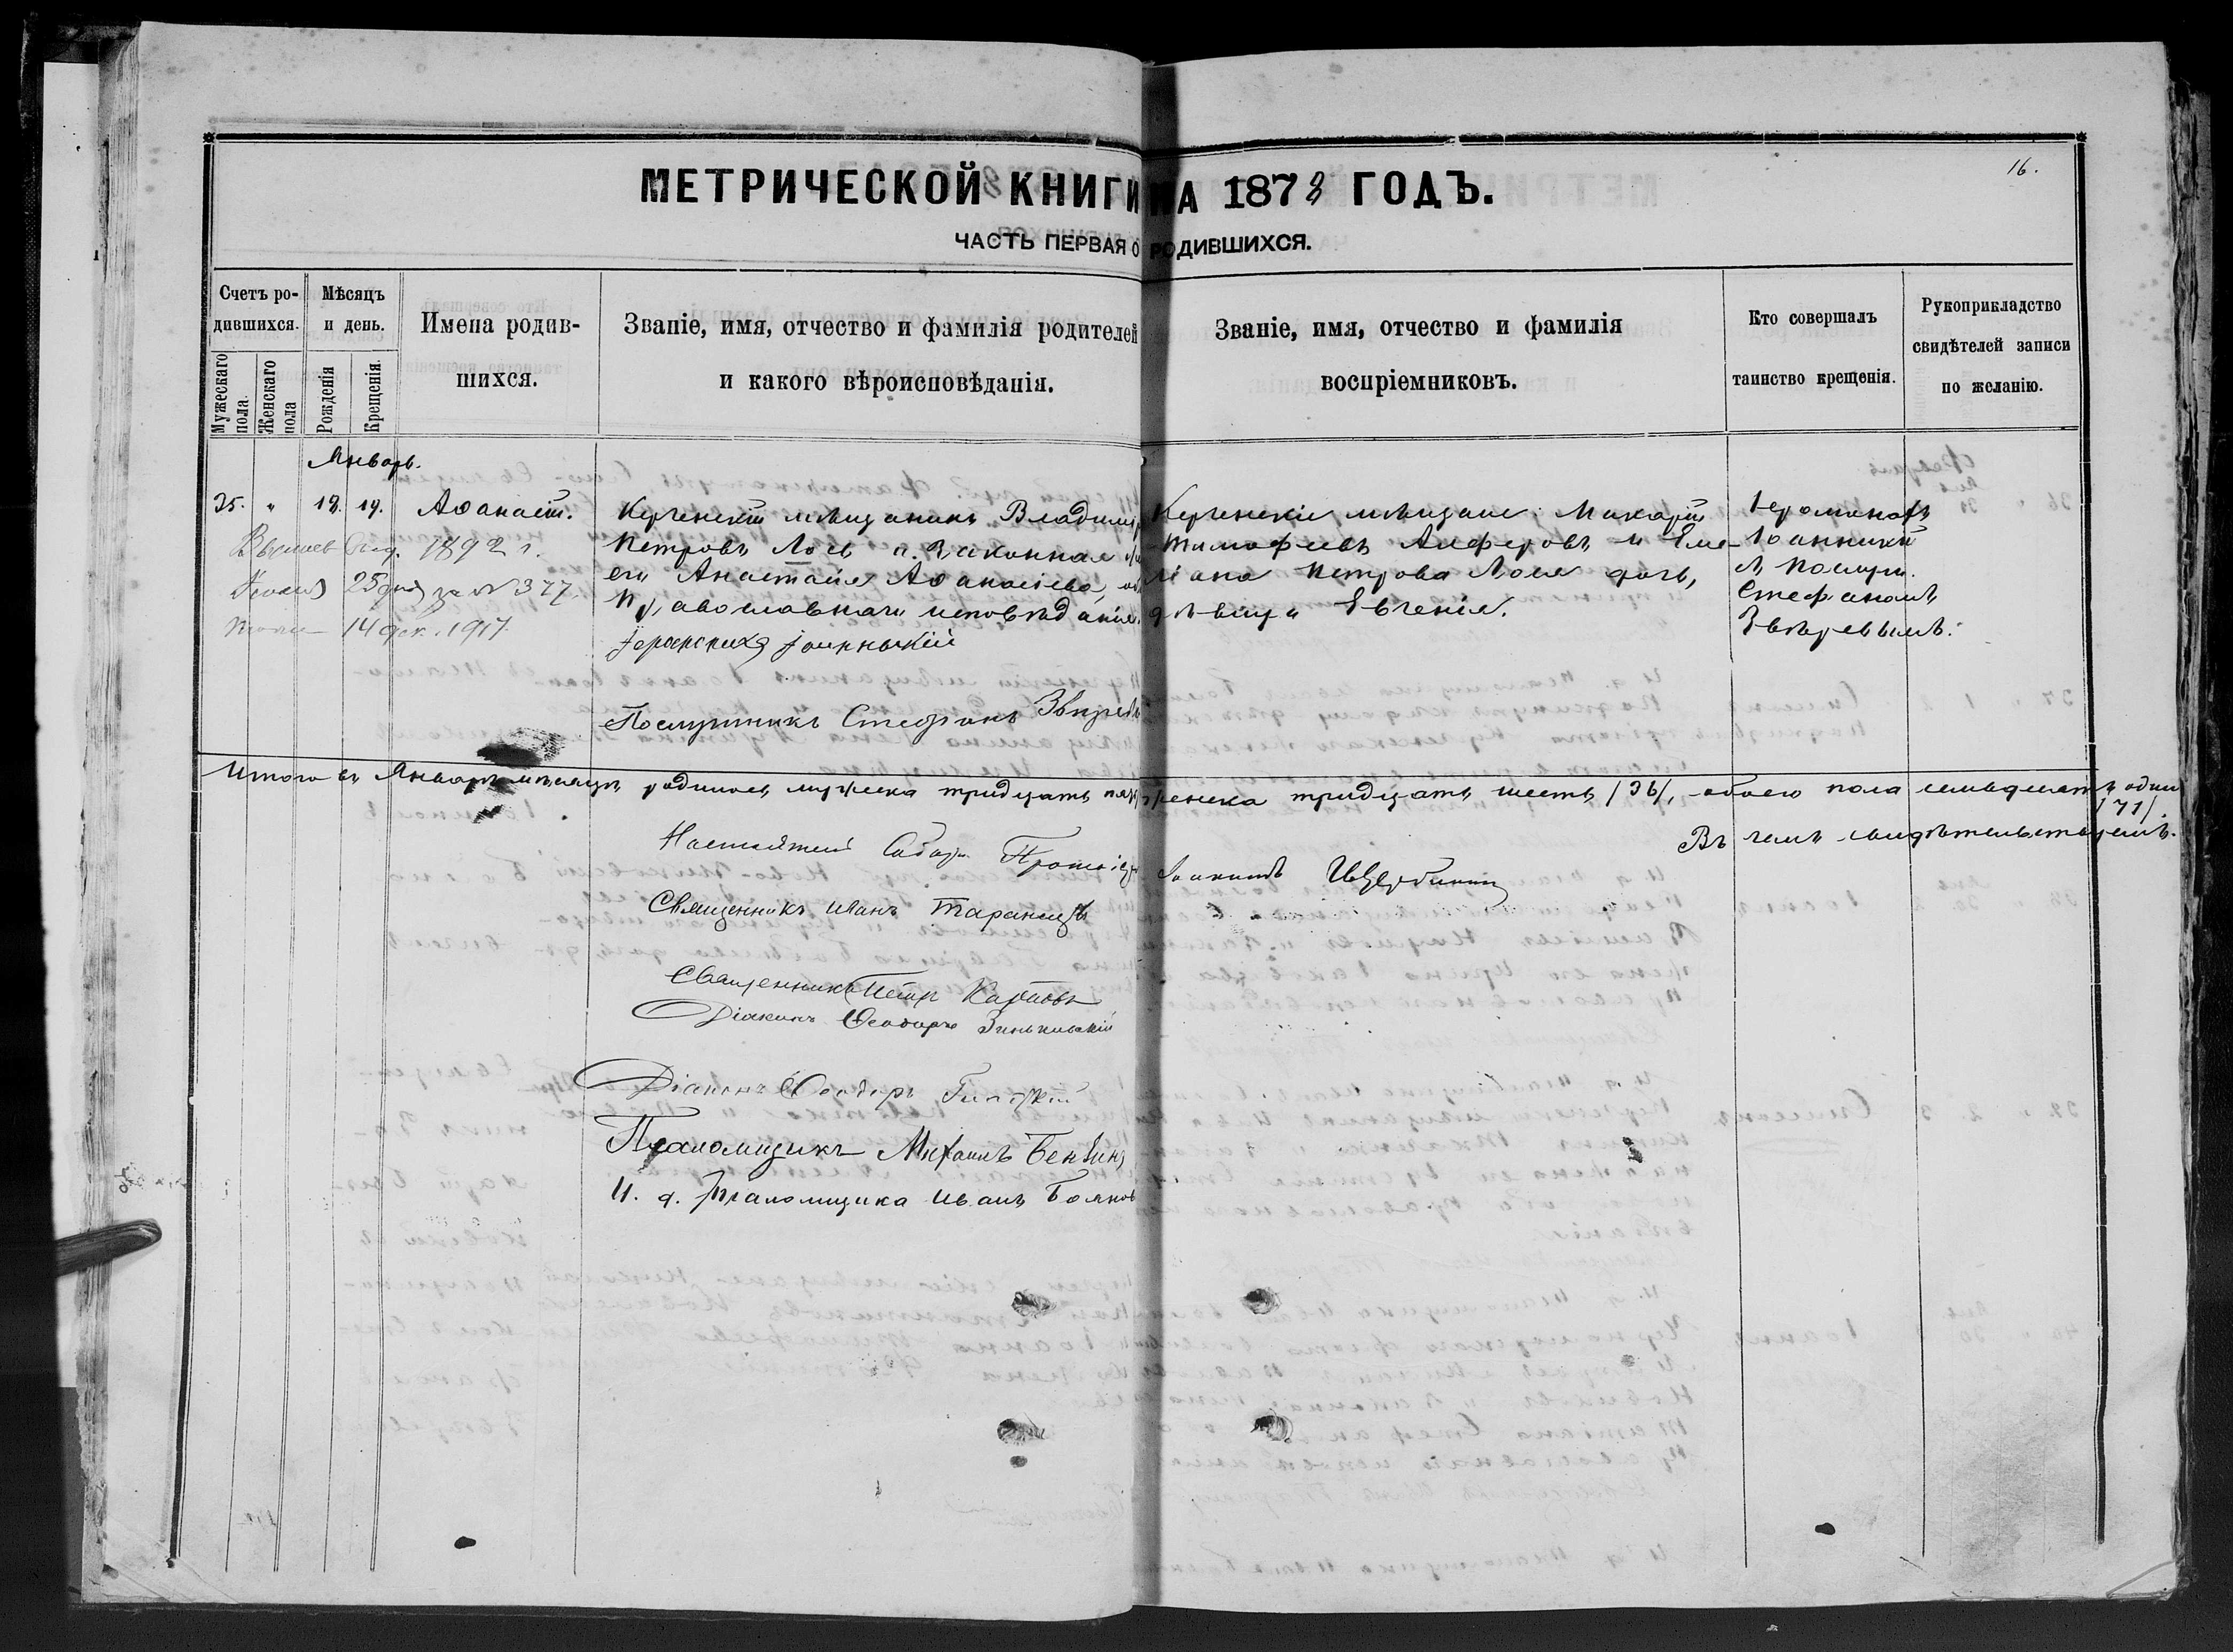 16.
МЕТРИЧЕСКОЙ КНИГИ НА 1878 ГОДЪ.
ЧАСТЬ ПЕРВАЯ О РОДИВШИХСЯ.
Счетъ родившихся.
Мужескаго пола.
Женскаго пола
Мѣсяцъ и день.
Рожденія
Крещенія.
Имена родившихся.
Званіе, имя, отчество и фамилія родителей
и какого вѣроисповѣданія.
Званіе, имя, отчество и фамилія
воспріемниковъ.
Кто совершалъ
таинство крещенія.
Рукоприкладство
свидѣтелей записи
по желанію.
Январь.
35. " 18. 19. Аѳанасій.
1892 г.
25 за № 377.
14 дек. 1917.
Керченскій мѣщанинъ Владиміръ
Петровъ Лось и законная
его Анастасія Аѳанасіева, об
Православнаго исповѣданія.
Послушникъ Стефанъ Звѣревъ
Керченскіе мѣщане: Макарій
Тимофеевъ Алферовъ и Еме-
ліана Петрова Лося дочь,
дѣвица Евгенія.
Іеромонахъ
Іоанникій
съ Послуш.
Стефаномъ
Звѣревымъ.
Итого въ Январѣ мѣсяцѣ родилось мужеска тридцать пять женска тридцать шесть /36/, – обоего пола семьдесятъ одинъ
/71/.
Въ чемъ свидѣтельствуемъ.
Настоятель Собора Протоіерей Іоаннъ
Священникъ Иванъ Таранецъ
Священникъ Петръ Карповъ
Діаконъ Ѳеодоръ Зиньковскій
Діаконъ Ѳеодоръ
Псаломщикъ Михаилъ
И. д. Псаломщика Иванъ Бояков